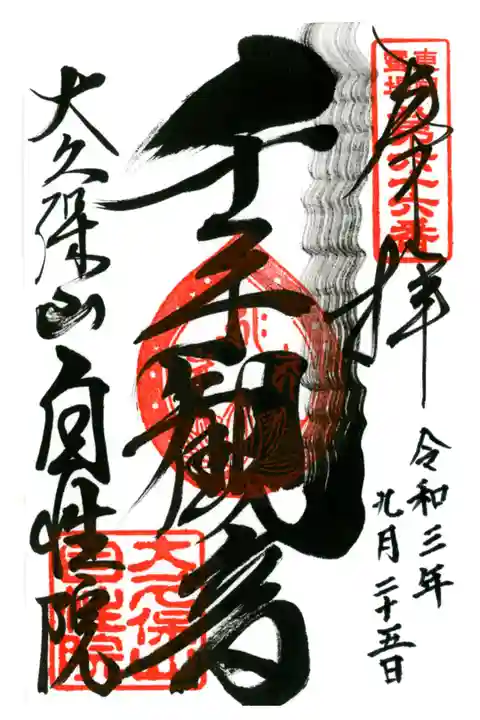 奉拝
令和三年
九月二十五日
千手観音
大久保山 自性院
大久保山
自性院